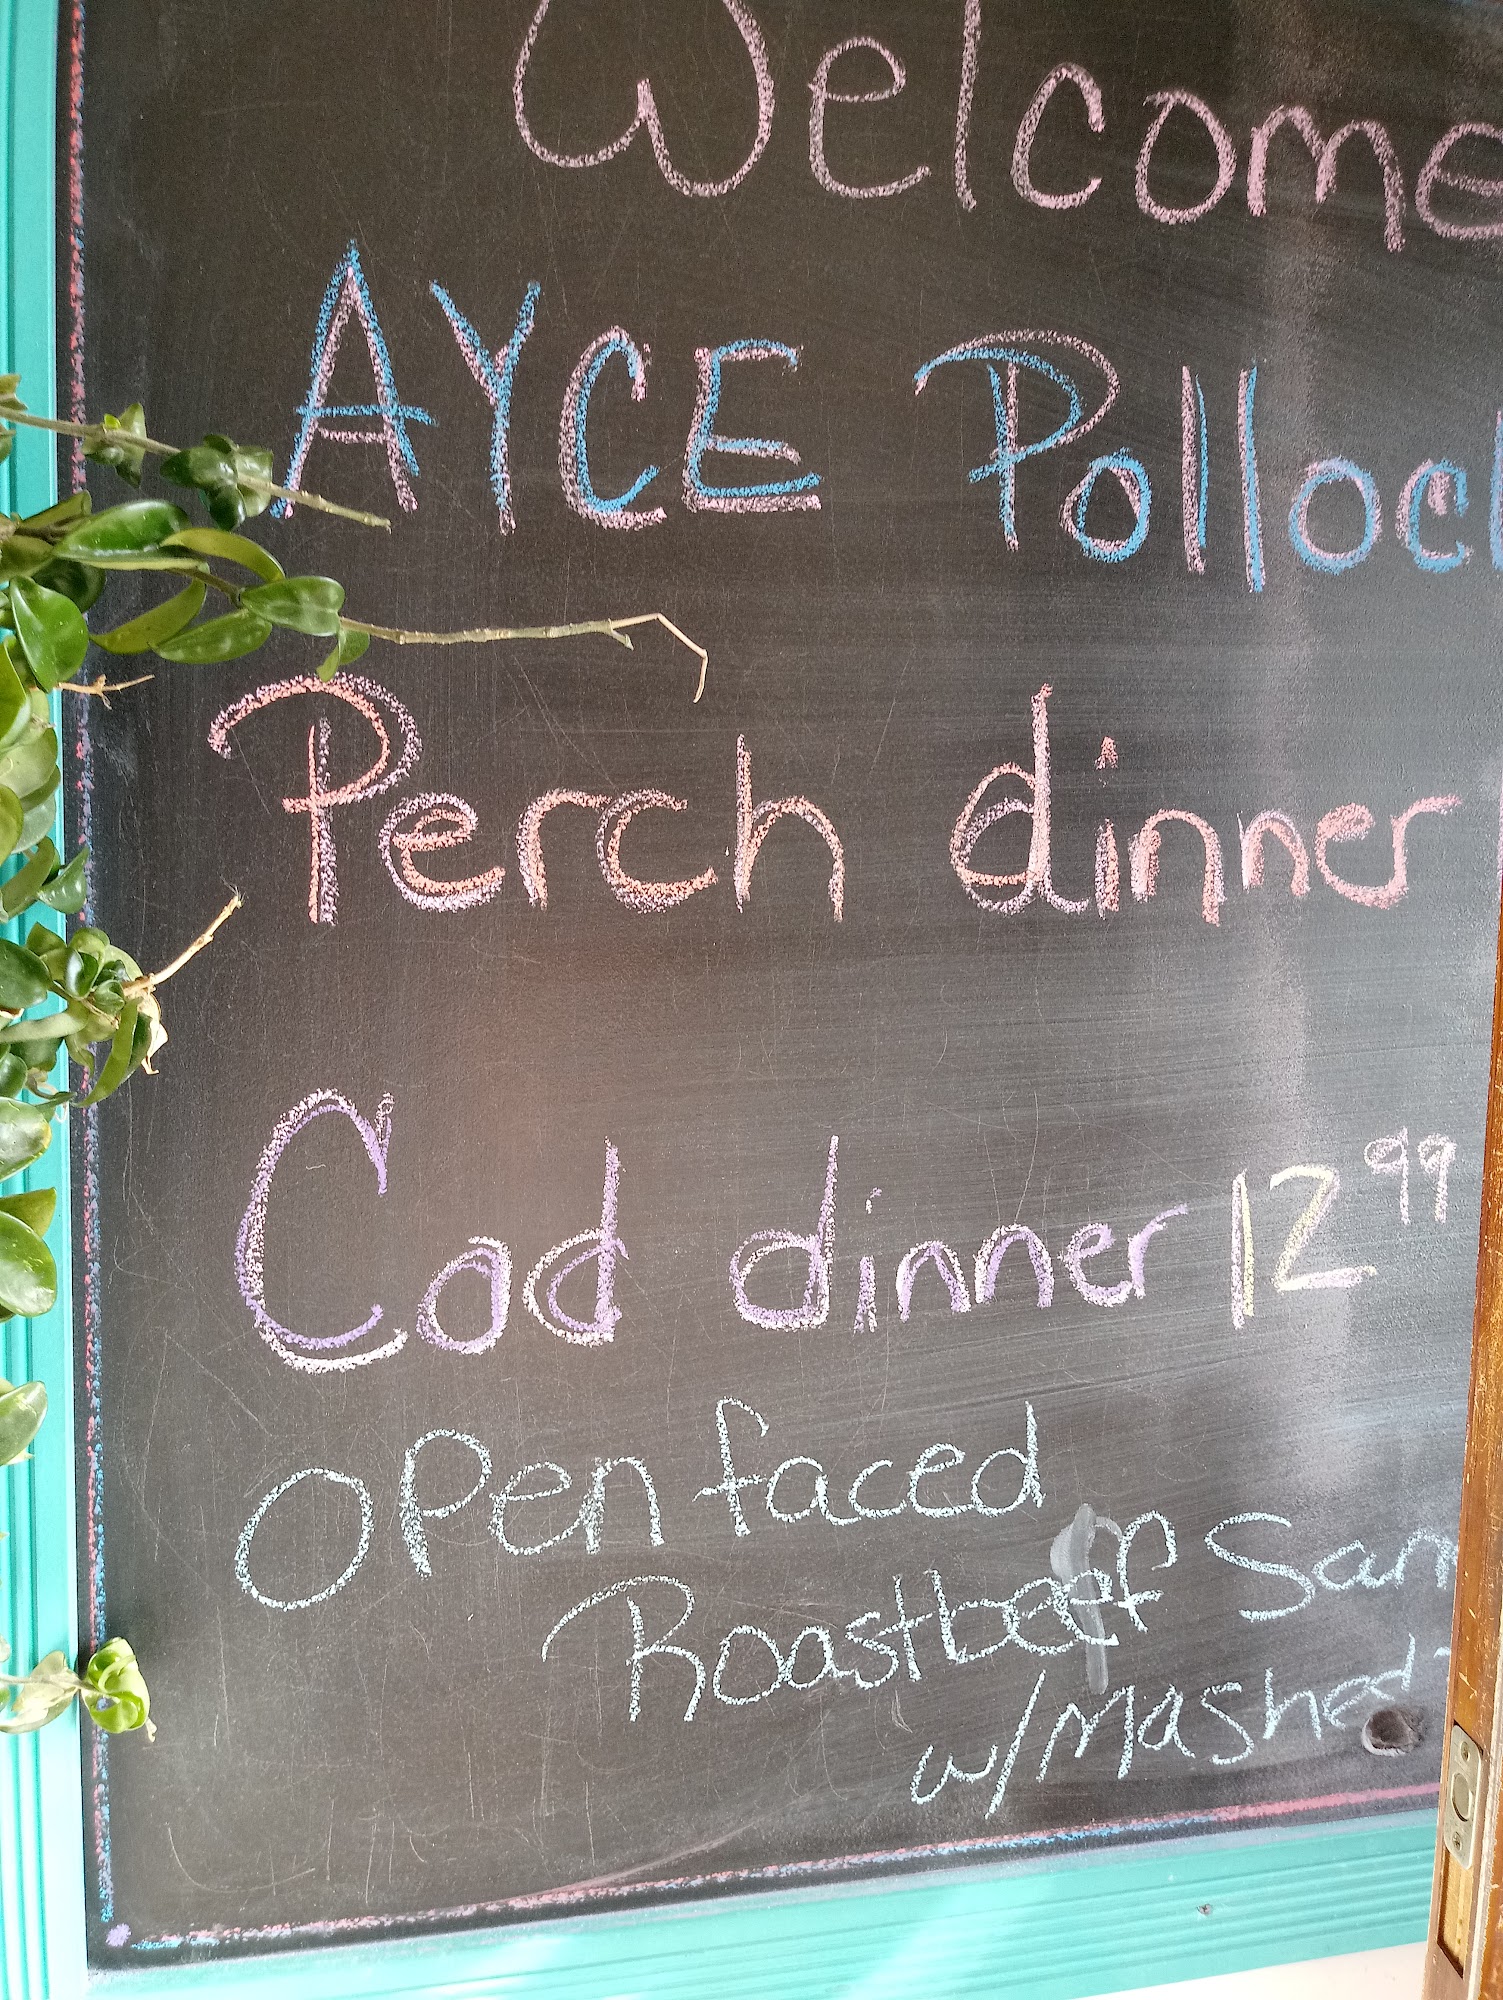 Welcome
AYCE Pollock
Perch dinner
Cod dinner 12 99
Open faced
Roastbeef San
w/Mashed